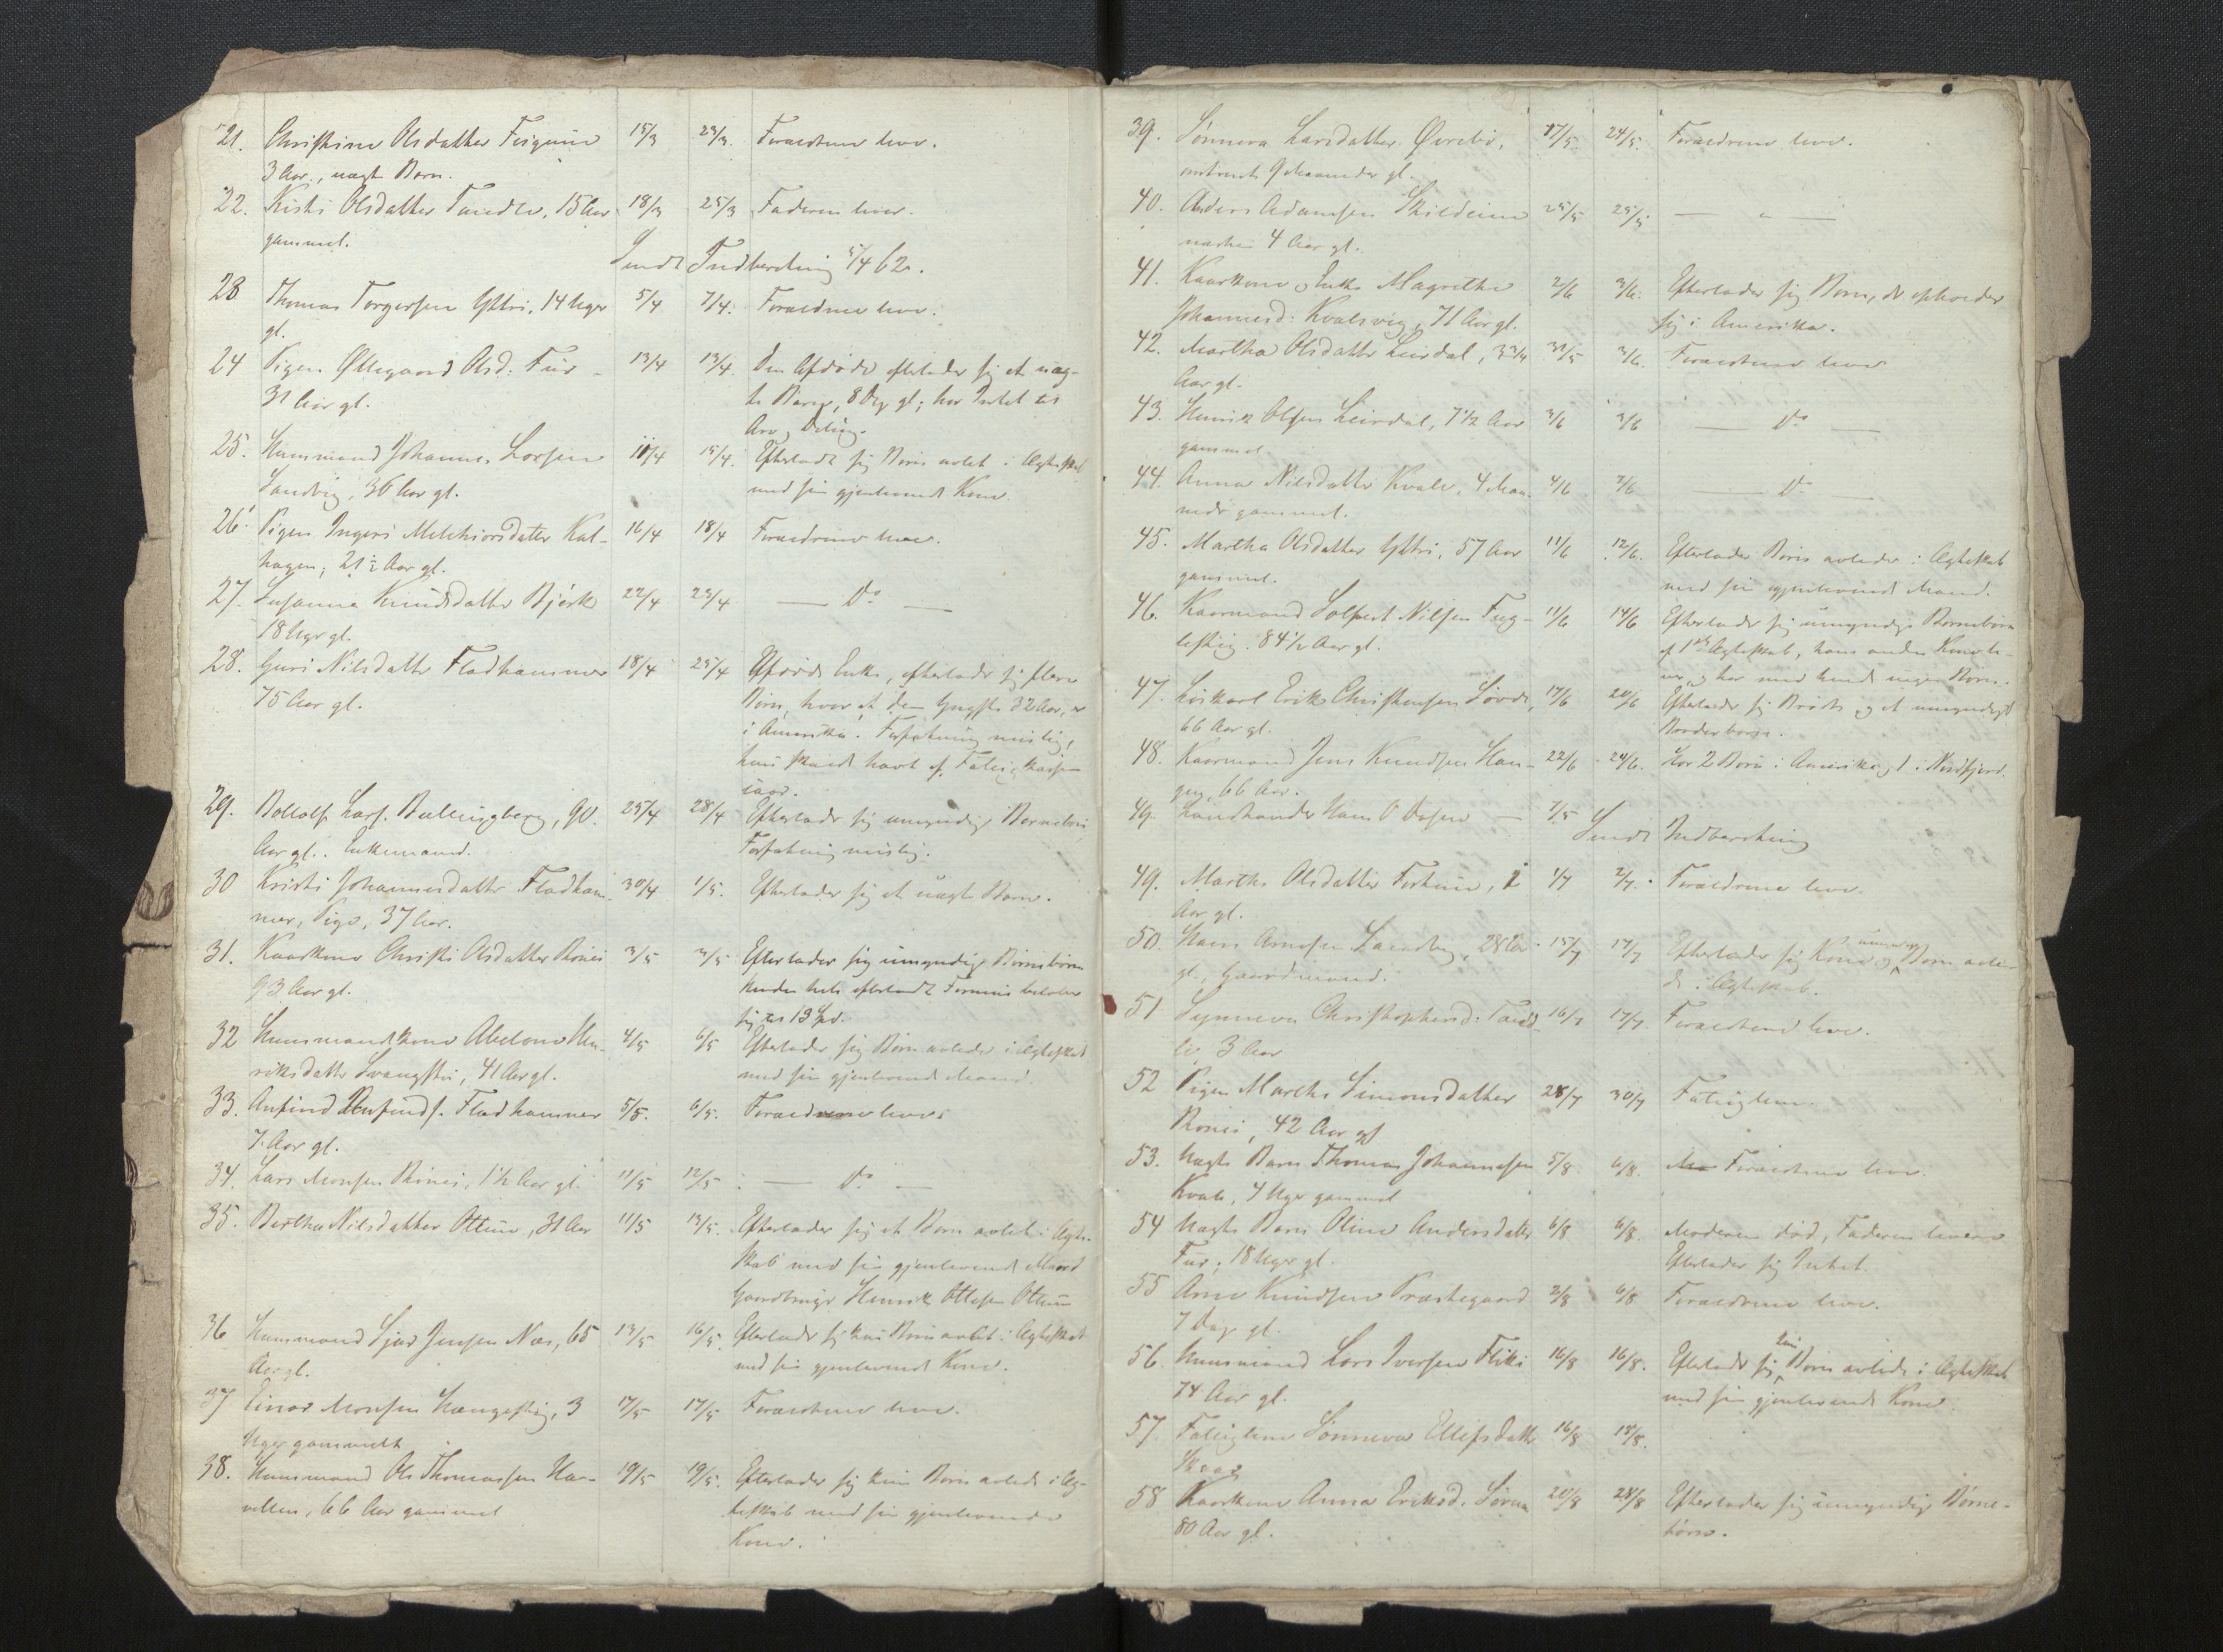 21. Christine Olsdatter 15/3 23/3. Forældrene leve.
3 Aar., uægte Barn.
22. Kristi Olsdatter 15 Aar 18/3 25/3 Faderen lever.
gammel.
Sendt Indberetning 5/4 62.
23 Thomas Torgersen Yttri, 14 Uger 5/4 7/4. Forældrene leve.
gl.
24 Pigen Øllegaard Olsd: Fur 13/4 13/4. Den Afdøde efterlader sig et uæg-
31 Aar gl. te Barn, 8 Dg gl; har Intet til
Arv og Deling.
25. Huusmand Johannes Larsen 11/4 15/4. Efterladt sig Børn avlet i Ægteskab
Sandvig, 36 Aar gl. med sin gjenlevende Kone.
26. Pigen Ingeri Melchiorsdatter Kal- 16/4 18/4 Forældrene leve.
hagen, 21 1/2 Aar gl.
27. Susanna Knudsdatter Bjørk 22/4 23/4 — Do —
18 Uger gl.
28. Guri Nilsdatter Fladhammer 18/4 25/4 Afdøde Enke, efterlader sig flere
75 Aar gl. Børn, hvoraf den Yngste 32 Aar, er
i Amerika. Forfatning mislig,
29. Lars. Bullingberg, 90. 25/4 28/4 Efterlader sig umyndige Børnebørn
Aar gl. Enkemand. Forfatning mislig.
30 Kristi Johannesdatter Fladham- 30/4 1/5. Efterlader sig et uægte Barn.
mer, Pige, 37 Aar.
31. Kaarkone Christi Olsdatter Rønei 3/5 3/5 Efterlader sig umyndige Børnebørn
93 Aar gl. hele efterladte Formue beløber
sig til 13 Spd.
32 Huusmandskone Abelone Hen- 4/5 6/5 Efterlader sig Børn avlede i Ægteskab
riksdatter 41 Aar gl. med sin gjenlevende Mand.
33. Anfind Anfinds. Fladhammer 5/5. 6/5. Forældrene leve.
7 Aar gl.
34. Lars Monsen Rønei, 1 1/2 Aar gl. 11/5 12/5 — Do —
35. Bertha Nilsdatter Ottum, 31 Aar 11/5 13/5. Efterlader sig et Barn avlet i Ægte-
skab med sin gjenlevende Mand
Gaardbruger Henrik Ottesen Ottum
36 Huusmand Sjur Jensen Næs, 65 13/5 16/5. Efterlader sig kun Børn avlet i Ægteskab
Aar gl. med sin gjenlevende Kone.
37 Einar Monsen 3 17/5 17/5 Forældrene leve.
Uger gammelt
38. Huusmand Ole Thomassen Ha- 19/5 19/5. Efterlader sig kun Børn avlede i Æg-
vellen, 66 Aar gammel teskab med sin gjenlevende
Kone.
39. Sønneva Larsdatter Øvrebø, 17/5 24/5. Forældrene leve.
omtrent 9 Maaneder gl.
40. Anders Adamsen 25/5 25/5. — " —
næsten 4 Aar gl.
41. Kaarkone og Enke Magrethe 2/6 3/6. Efterlader sig Børn, der opholder
Johannesd: Kvalsvig, 71 Aar gl. sig i Amerika.
42. Martha Olsdatter Leirdal, 3 3/4 31/5 3/6. Forældrene leve
Aar gl.
43. Henrik Olsen Leirdal, 7 1/2 Aar 3/6 3/6 — Do —
gammel.
44. Anna Nilsdatter Kvale, 4 Maa- 4/6 7/6 — Do —
neder gammel.
45. Martha Olsdatter Yttri, 57 Aar 11/6 12/6. Efterlader Børn avlede i Ægteskab
gammel. med sin gjenlevende Mand.
46. Kaarmand Solfest Nilsen Fug- 11/6 14/6 Efterlader sig umyndige Børnebørn
lesteg. 84 1/2 Aar gl. af 1ste Ægteskab, hans anden Kone le-
ver, og har med hende ingen Børn.
47. Løskarl Erik Christensen 17/6 20/6 Efterlader sig Brødre og et umyndigt
66 Aar gl. Broderbarn.
48. Kaarmand Jens Knudsen Hau- 22/6 24/6. Har 2 Børn i Amerika og 1 i Nordfjord.
gen, 66 Aar.
49. Landhandler Hans O — 7/5 Sendt Indberetning
49. Marthe Olsdatter Fortun, 1/7 2/7. Forældrene leve.
Aar gl.
50. Hans Arnesen 28 Aar 15/7 17/7 Efterlader sig Kone og umyndige Børn avle-
gl., Gaardmand. de i Ægteskab.
51 Synneva Christophersd: 16/7 17/7. Forældrene leve.
3 Aar
52 Pigen Marthe Simonsdatter 28/7 30/7 Fattiglem.
Rønei, 42 Aar gl
53. Uægte Barn Thomas Johannesen 5/8 6/8. Forældrene leve.
Kvale, 4 Uger gammel
54 Uægte Barn Oline Andersdatter 6/8 6/8. Moderen død, Faderen lever
Fur, 18 Uger gl. Efterlader sig Intet.
55 Arne Knudsen Præstegaard 2/8 6/8 Forældrene leve.
7 Dage gl.
56. Huusmand Lars Iversen 16/8 16/8. Efterlader sig kun Børn avlede i Ægteskab
74 Aar gl. med sin gjenlevende Kone.
57. Fattiglem Sønneva Ellefsdatter 16/8 18/8.
58. Kaarkone Anna Eriksd. 20/8 28/8 Efterlader sig umyndige Børne-
80 Aar gl. børn.